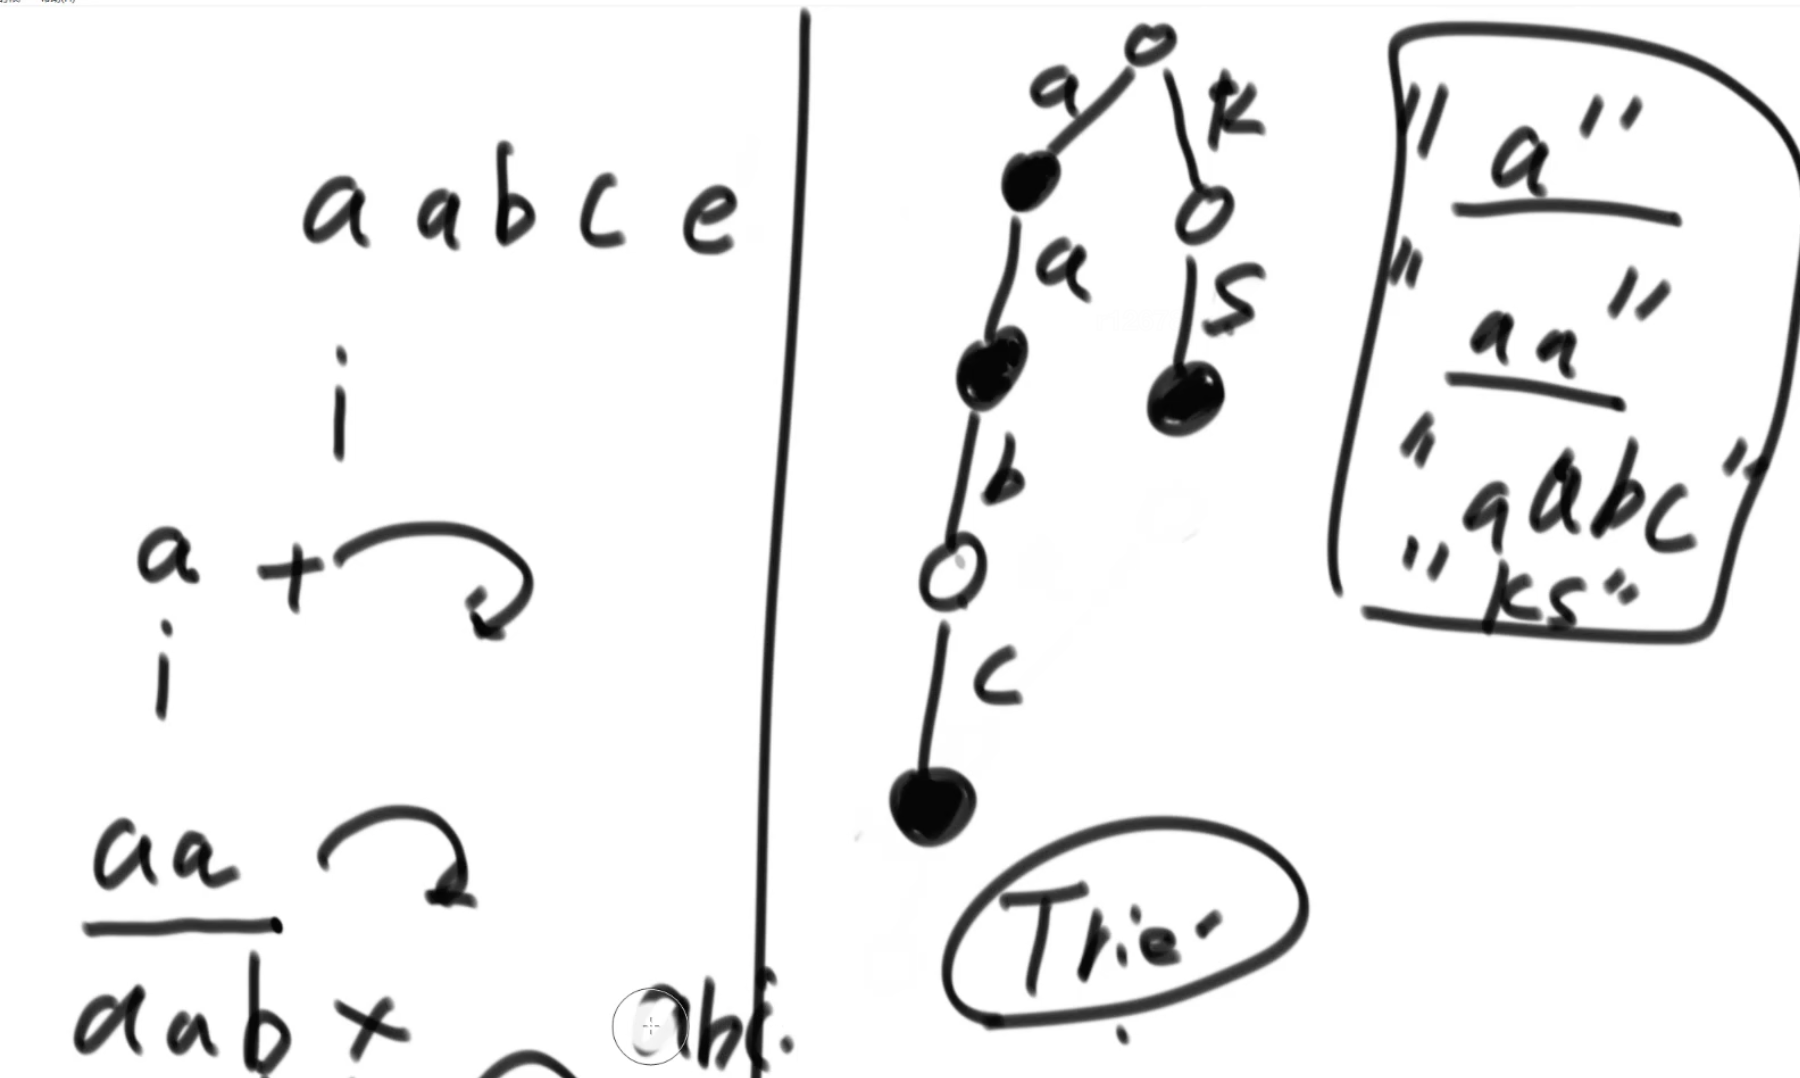 a a b c e
i
a +
i
aa
aab x
a
k
a
s
b
c
Trie
"a"
"aa"
"aabc"
"ks"